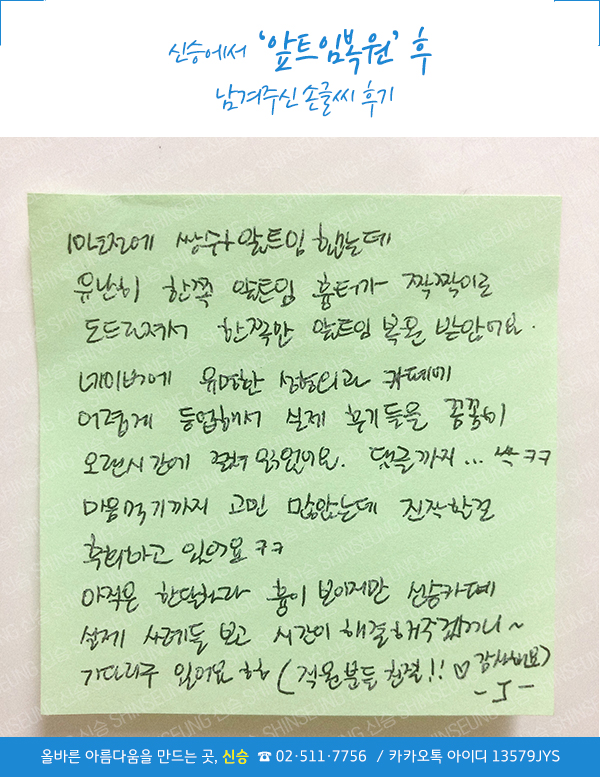 신승에서 '앞트임복원' 후
남겨주신 손글씨 후기
1년전에 쌍수+앞트임 했는데
유난히 한쪽 앞트임 흉터가 짝짝이로
도드라져서 한쪽만 앞트임 복원 받았어요.
네이버에 유명한 성형외과 카페에
어렵게 등업해서 실제 후기들을 꼼꼼히
오랜시간에 걸쳐 읽었어요. 댓글까지... 싹 ㅋㅋ
마음먹기까지 고민 많았는데 진작할걸
후회하고 있어요 ㅋㅋ
아직은 한달차라 흉이 보이지만 신승카페
실제 사례들 보고 시간이 해결해주겠거니~
기다리구 있어요 ㅎㅎ (직원분들 친절!! ♡ 감사해요)
- J -
올바른 아름다움을 만드는 곳, 신승 ☎ 02·511·7756 / 카카오톡 아이디 13579JYS